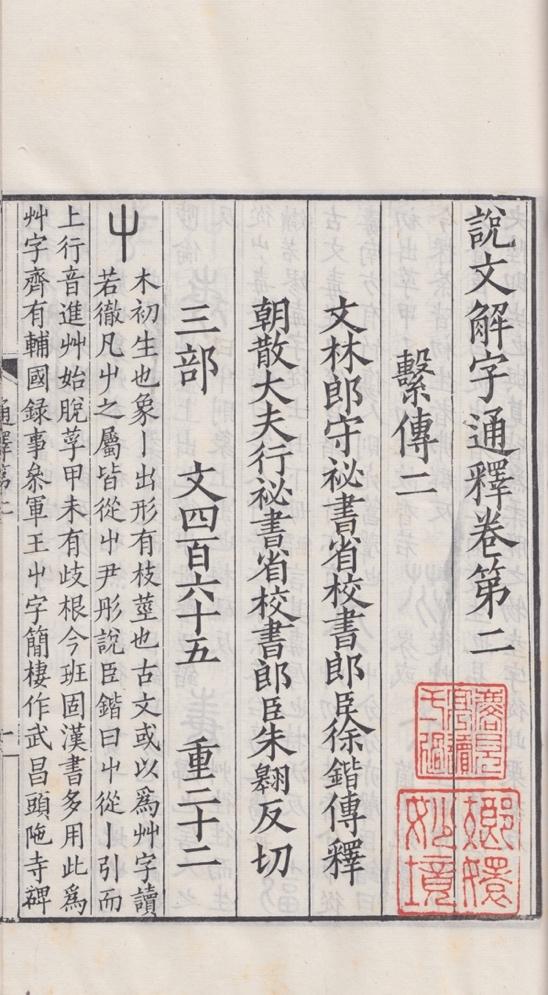 說文解字通釋卷第二
繫傳二
文林郎守祕書省校書郎臣徐鍇傳釋
朝散大夫行祕書省校書郎臣朱翱反切
三部 文四百六十五 重三十二
屮
木初生也象丨出形有枝莖也古文或以爲艸字讀
若徹凡屮之屬皆從屮尹彤說臣鍇曰屮從丨引而
上行音進艸始脫莩甲未有歧根今班固漢書多用此爲
艸字齊有輔國録事叅軍王屮字簡棲作武昌頭陁寺碑
通釋第二
嫏嬛
妙境